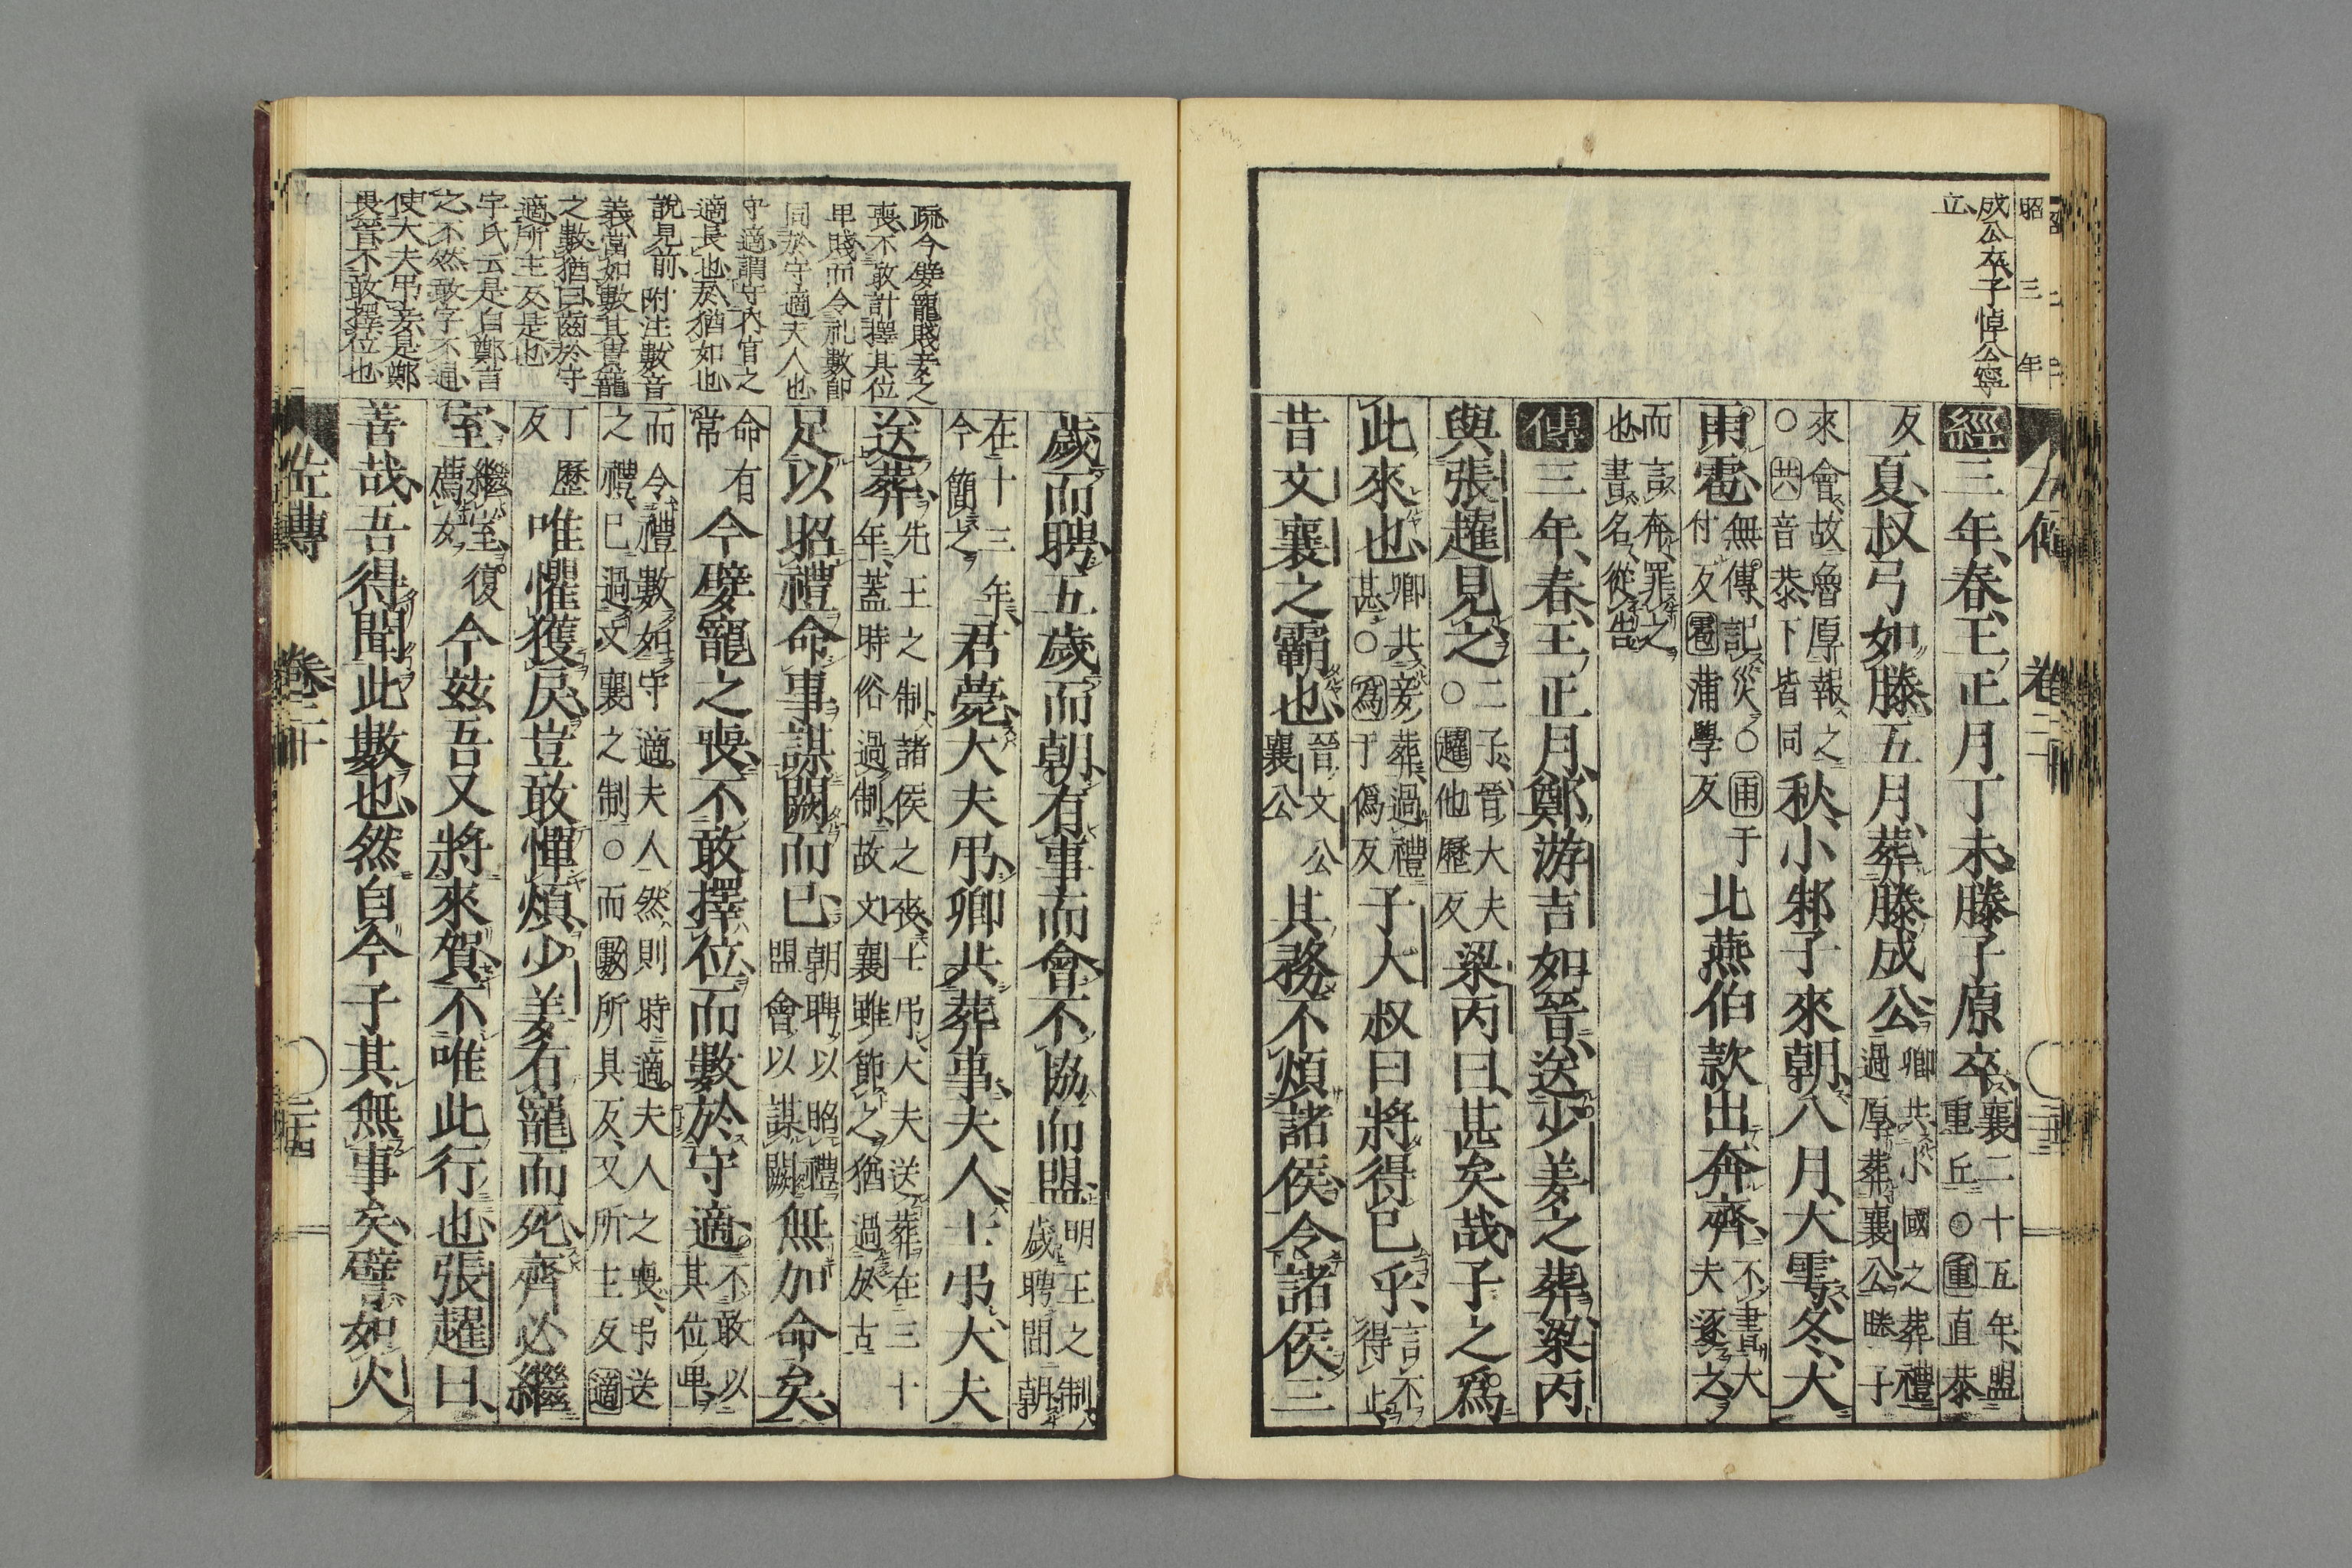 昭三年
成公卒子悼公寧
立
經三年春王正月丁未滕子原卒襄二十五年盟重丘○重直恭
反夏叔弓如滕五月葬滕成公卿共小國之葬禮過厚葬襄公滕子
來會故魯厚報之○共音恭下皆同秋小邾子來朝八月大雩冬大
雨雹無傳記災○雨于付反雹蒲學反北燕伯款出奔齊不書大夫逐之
而言奔罪之也書名從告
傳三年春王正月鄭游吉如晉送少姜之葬梁丙
與張趯見之二子晉大夫○趯他歷反梁丙曰甚矣哉子之爲
此來也卿共妾葬過禮甚○爲于僞反子大叔曰將得已乎言不得止
昔文襄之霸也晉文公襄公其務不煩諸侯令諸侯三
歲而聘五歲而朝有事而會不協而盟明王之制歲聘間朝
在十三年今簡之君薨大夫弔卿共葬事夫人士弔大夫
送葬先王之制諸侯之喪士弔大夫送葬在三十年蓋時俗過制故文襄雖節之猶過於古
足以昭禮命事謀闕而已朝聘以昭禮盟會以謀闕無加命矣
命有常今嬖寵之喪不敢擇位而數於守適不敢以其位卑
而令禮數如守適夫人然則時適夫人之喪弔送之禮已過文襄之制○而數所具反又所主反適
丁歷反唯懼獲戾豈敢憚煩少姜有寵而死齊必繼
室繼室復薦女今茲吾又將來賀不唯此行也張趯曰
善哉吾得聞此數也然自今子其無事矣譬如火
疏今嬖寵賤妾之
喪不敢計擇其位
卑賤而令礼數即
同於守適夫人也
守適謂守内官之
適長也於猶如也
說見前附注數音
義當如數其貴寵
之數猶曰齒於守
適所主反是也
宇氏云是自鄭言
之不然敢字不通
使大夫弔妾是鄭
畏晉不敢擇位也
左傳 卷二十 二十四